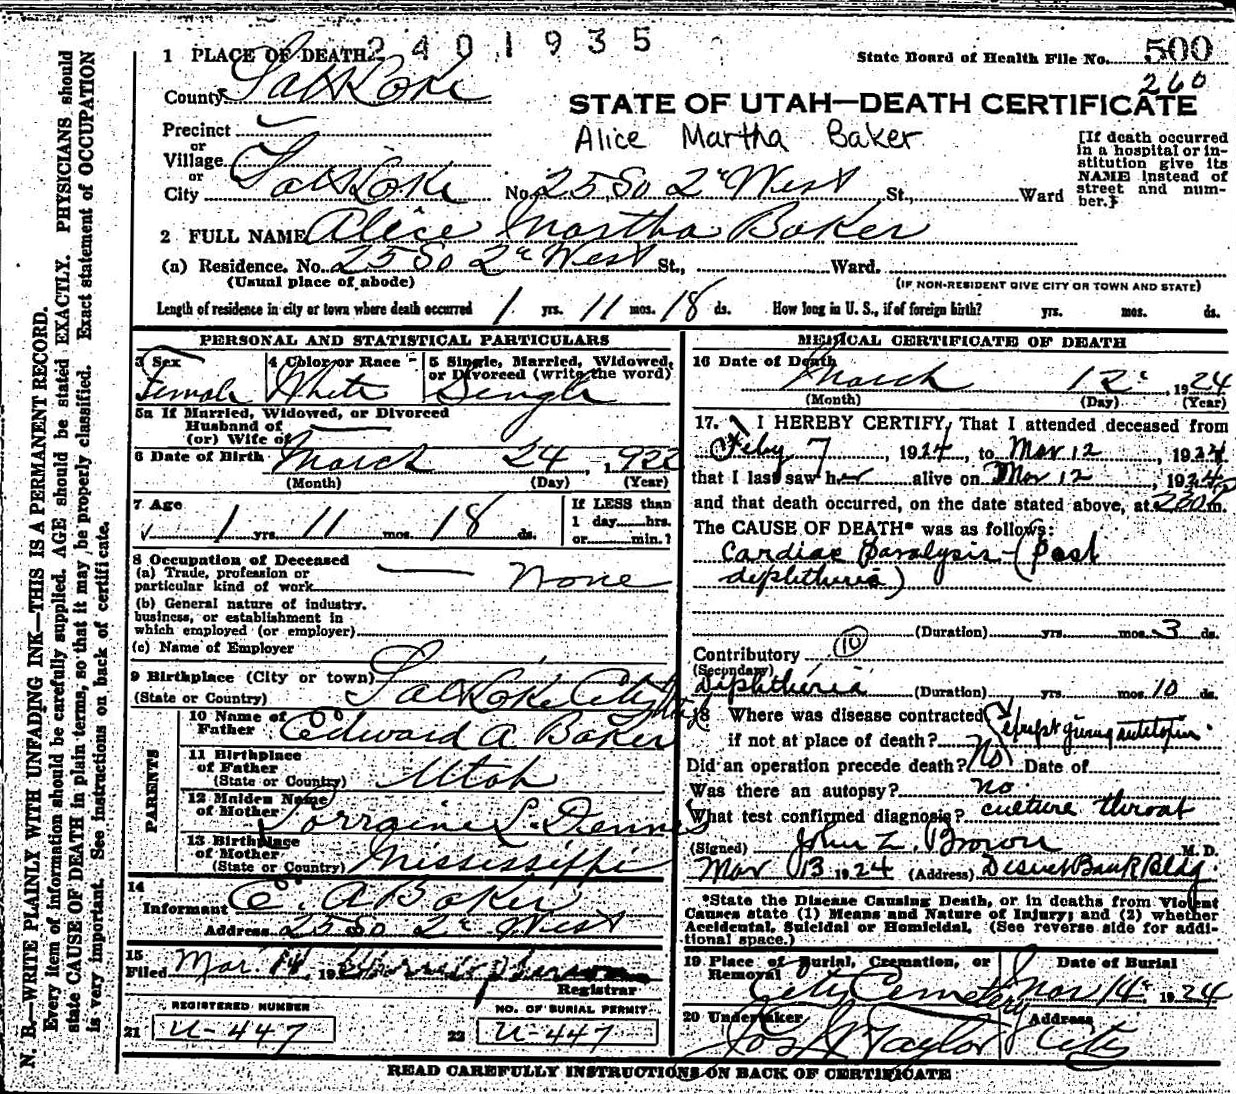 2401935
1 PLACE OF DEATH
State Board of Health File No. 500
260
County Salt Lake
STATE OF UTAH—DEATH CERTIFICATE
Precinct
Alice Martha Baker
or
Village
or
City Salt Lake No. 25 So 2d West St., Ward
[If death occurred
in a hospital or in-
stitution give its
NAME instead of
street and num-
ber.]
2 FULL NAME Alice Martha Baker
(a) Residence. No. 25 So 2d West St., Ward.
(Usual place of abode) (IF NON-RESIDENT GIVE CITY OR TOWN AND STATE)
Length of residence in city or town where death occurred 1 yrs. 11 mos. 18 ds. How long in U. S., if of foreign birth? yrs. mos. ds.
PERSONAL AND STATISTICAL PARTICULARS
3 Sex 4 Color or Race 5 Single, Married, Widowed,
or Divorced (write the word)
Female White Single
5a If Married, Widowed, or Divorced
Husband of
(or) Wife of
6 Date of Birth March 24, 1922
(Month) (Day) (Year)
7 Age
1 yrs. 11 mos. 18 ds.
If LESS than
1 day hrs.
or min.?
8 Occupation of Deceased
(a) Trade, profession or
particular kind of work None
(b) General nature of industry,
business, or establishment in
which employed (or employer)
(c) Name of Employer
9 Birthplace (City or town) Salt Lake City
(State or Country) Utah
PARENTS
10 Name of
Father Edward A. Baker
11 Birthplace
of Father
(State or Country) Utah
12 Maiden Name
of Mother Lorraine L. Dennis
13 Birthplace
of Mother
(State or Country) Mississippi
14
Informant E. A Baker
Address 25 So 2d West
15
Filed Mar 14 19
Registrar
REGISTERED NUMBER NO. OF BURIAL PERMIT
21 U-447 22 U-447
MEDICAL CERTIFICATE OF DEATH
16 Date of Death
March 12 1924
(Month) (Day) (Year)
17. I HEREBY CERTIFY, That I attended deceased from
Feby 7, 1924, to Mar 12, 1924
that I last saw her alive on Mar 12, 1924
and that death occurred, on the date stated above, at 230 m.
The CAUSE OF DEATH* was as follows:
Cardiac Paralysis—(post
diphtheria)
(Duration) yrs. mos. 3 ds.
Contributory 10
(Secondary)
Diphtheria (Duration) yrs. mos. 10 ds.
18 Where was disease contracted
if not at place of death? giving antitoxin
Did an operation precede death? No Date of
Was there an autopsy? no
What test confirmed diagnosis? culture throat
(Signed) John Z. Brown M. D.
Mar 13 1924 (Address) Deseret Bank Bldg
*State the Disease Causing Death, or in deaths from Violent
Causes state (1) Means and Nature of Injury; and (2) whether
Accidental, Suicidal or Homicidal. (See reverse side for addi-
tional space.)
19 Place of Burial, Cremation, or Date of Burial
Removal
City Cemetery Mar 14 1924
20 Undertaker Address
Jos Wm Taylor City
READ CAREFULLY INSTRUCTIONS ON BACK OF CERTIFICATE
N. B.—WRITE PLAINLY WITH UNFADING INK—THIS IS A PERMANENT RECORD.
Every item of information should be carefully supplied. AGE should be stated EXACTLY. PHYSICIANS should
state CAUSE OF DEATH in plain terms, so that it may be properly classified. Exact statement of OCCUPATION
is very important. See instructions on back of certificate.